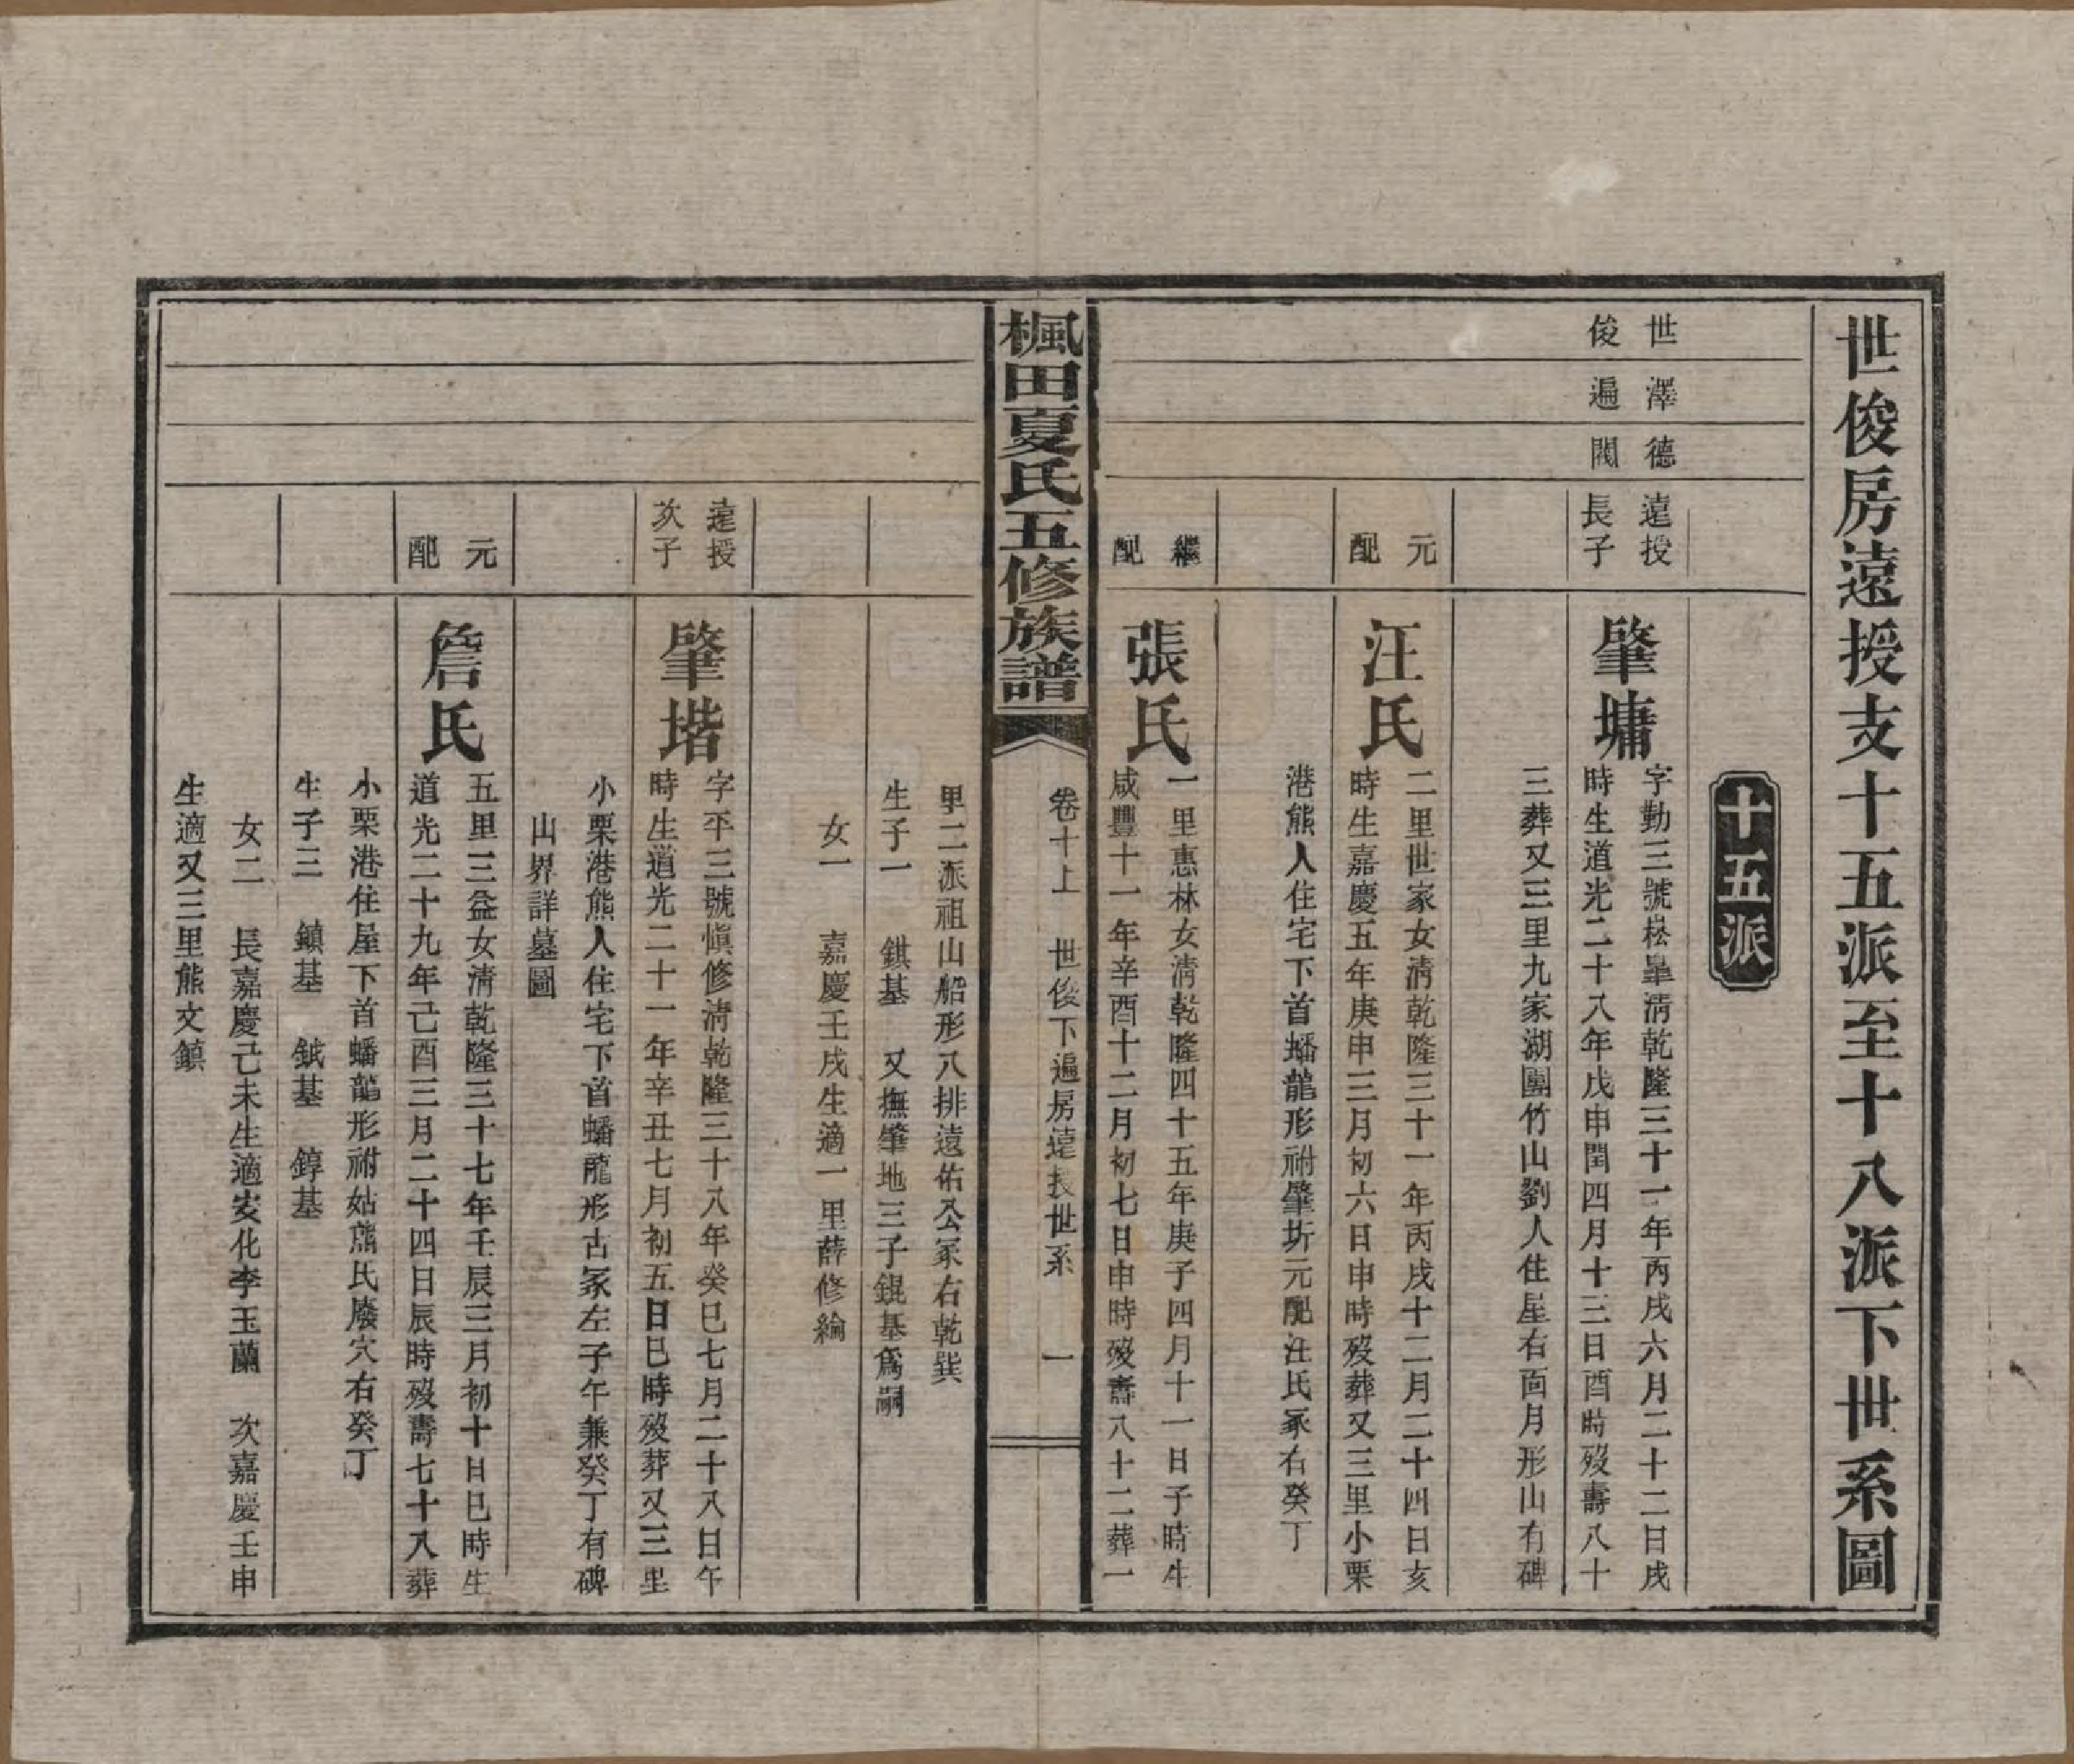 世俊房遠授支十五派至十八派下世系圖
十五派
世澤德
俊遍閥
遠授
長子
肇墉
字勤三號崧皐淸乾隆三十一年丙戌六月二十二日戌
時生道光二十八年戊申閏四月十三日酉時歿壽八十
三葬又三里九家湖團竹山劉人住屋右面月形山有碑
元
配
汪氏
二里世家女淸乾隆三十一年丙戌十二月二十四日亥
時生嘉慶五年庚申三月初六日申時歿葬又三里小栗
港熊人住宅下首蟠龍形祔肇圻元配汪氏冢右癸丁
繼
配
張氏
一里惠林女淸乾隆四十五年庚子四月十一日子時生
咸豐十一年辛酉十二月初七日申時歿壽八十二葬一
楓田夏氏五修族譜
卷十上 世俊下遍房遠授世系 一
里二派祖山船形八排遠佑公冢右乾巽
生子一 鉷基 又撫肇地三子錕基爲嗣
女一 嘉慶壬戌生適一里薛修綸
遠授
次子
肇堦
字平三號愼修淸乾隆三十八年癸巳七月二十八日午
時生道光二十一年辛丑七月初五日巳時歿葬又三里
小栗港熊人住宅下首蟠龍形古冢左子午兼癸丁有碑
山界詳墓圖
元
配
詹氏
五里三益女淸乾隆三十七年壬辰三月初十日巳時生
道光二十九年己酉三月二十四日辰時歿壽七十八葬
小栗港住屋下首蟠龍形祔姑熊氏廢穴右癸丁
生子三 鎮基 鉞基 錞基
女二 長嘉慶己未生適安化李玉蘭 次嘉慶壬申
生適又三里熊文鎮